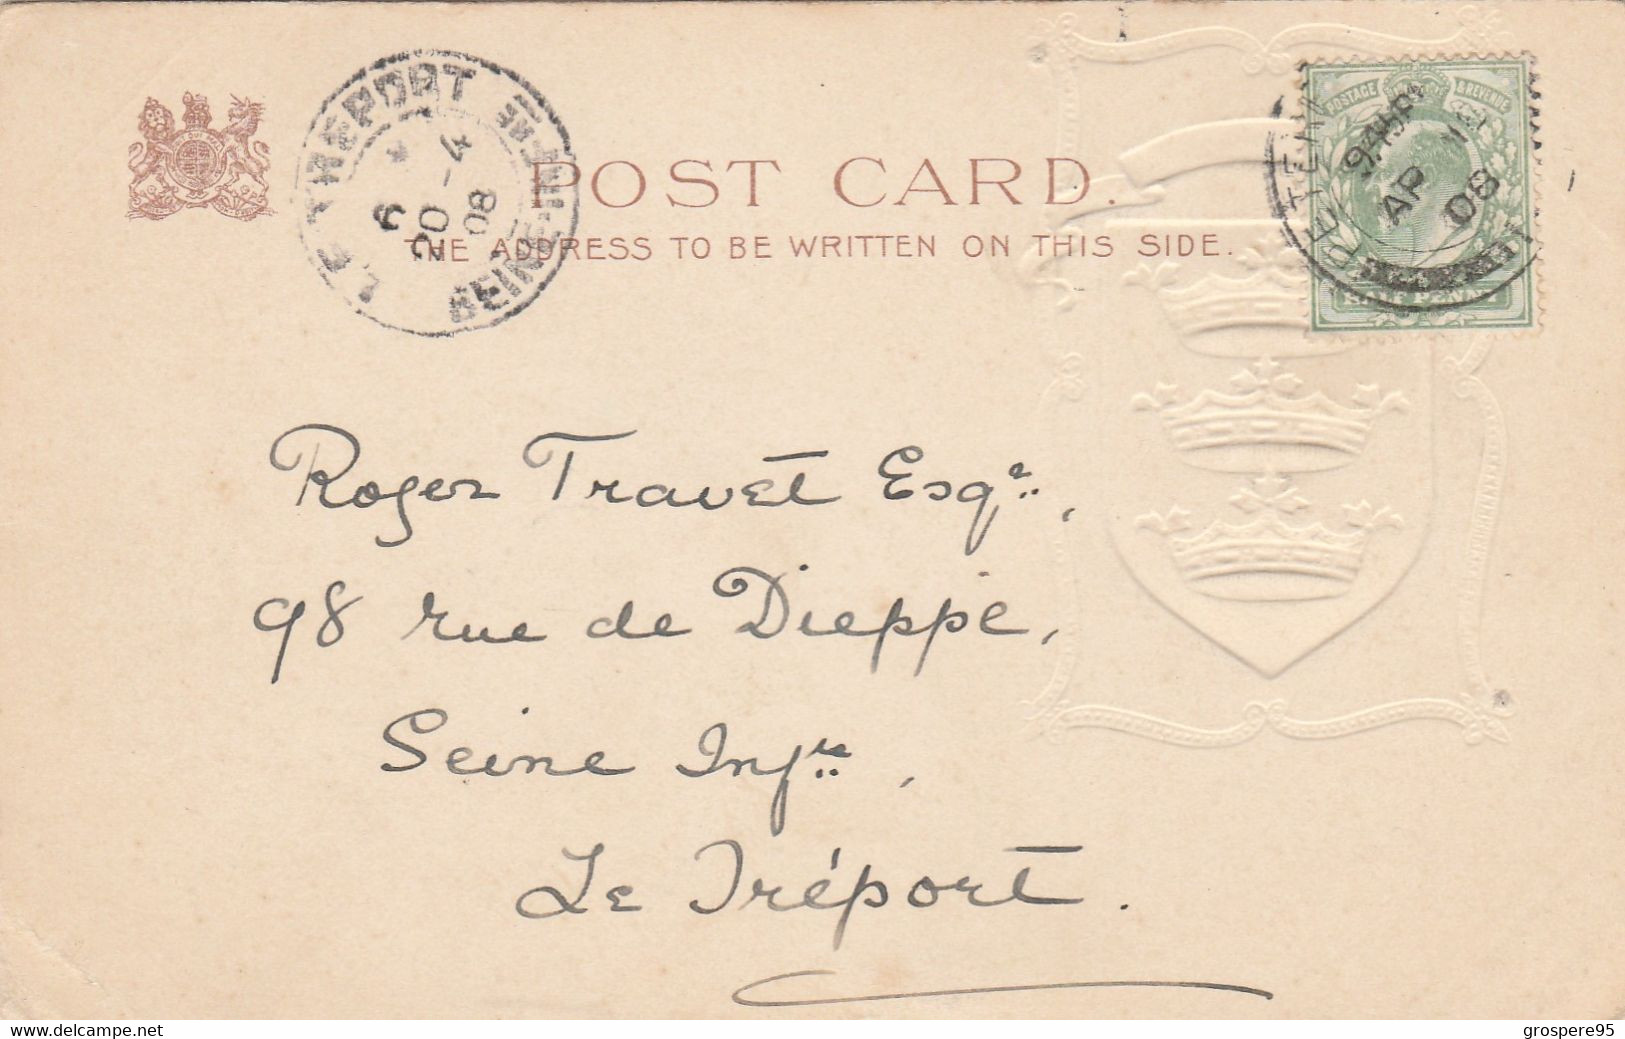 POST CARD.
THE ADDRESS TO BE WRITTEN ON THIS SIDE.
LE TREPORT SEINE-INFRE
6
20-4
08
POSTAGE & REVENUE
AP
08
HALF PENNY
Roger Travet Esqre.,
98 rue de Dieppe,
Seine Infre,
Le Tréport.
delcampe.net
grospere95